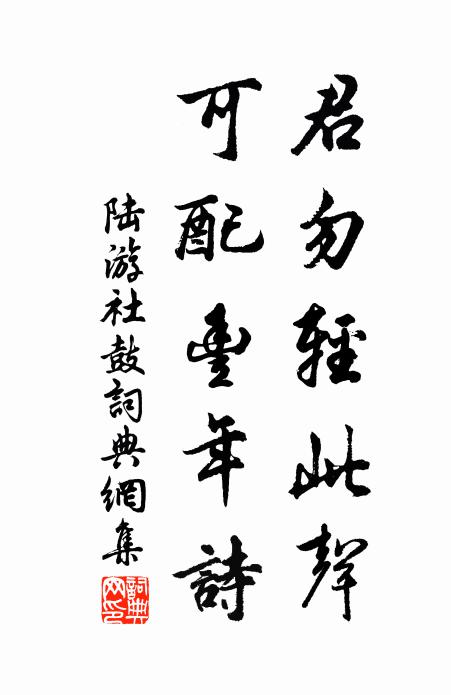 君勿輕此聲
可配豐年詩
陆游社鼓詞典網集
詞典网印